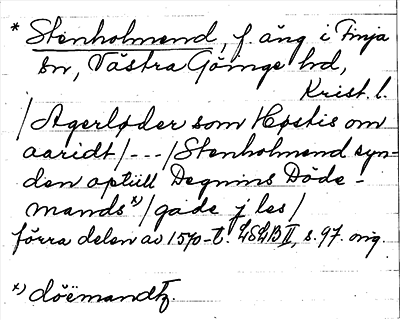 * Stenholmend, f. äng i Finja
sn, Västra Göinge hd,
Krist. l.
/Agerløder som Høstis om
aaridt/---/Stenholmend syn-
den optiill Degnins Döde-
mands*)/gade j les/
förra delen av 1570-t. LSLB II, s. 97. orig.
*) döëmandtz.